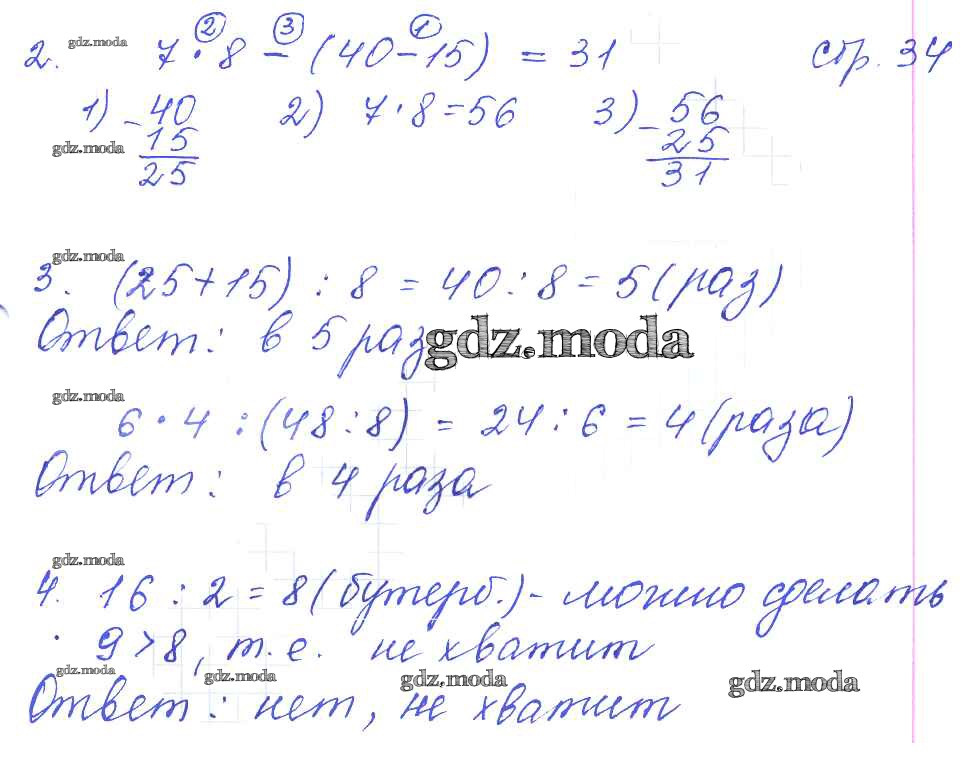 2. gdz.moda 7 · 8 − (40 − 15) = 31 стр. 34
② ③ ①
1) − 40 2) 7 · 8 = 56 3) − 56
gdz.moda 15 25
25 31
gdz.moda
3. (25 + 15) : 8 = 40 : 8 = 5 (раз)
Ответ: в 5 раз gdz.moda
gdz.moda
6 · 4 : (48 : 8) = 24 : 6 = 4 (раза)
Ответ: в 4 раза
gdz.moda
4. 16 : 2 = 8 (бутерб.) - можно сделать
9 > 8, т.е. не хватит
gdz.moda gdz.moda gdz.moda gdz.moda
Ответ: нет, не хватит